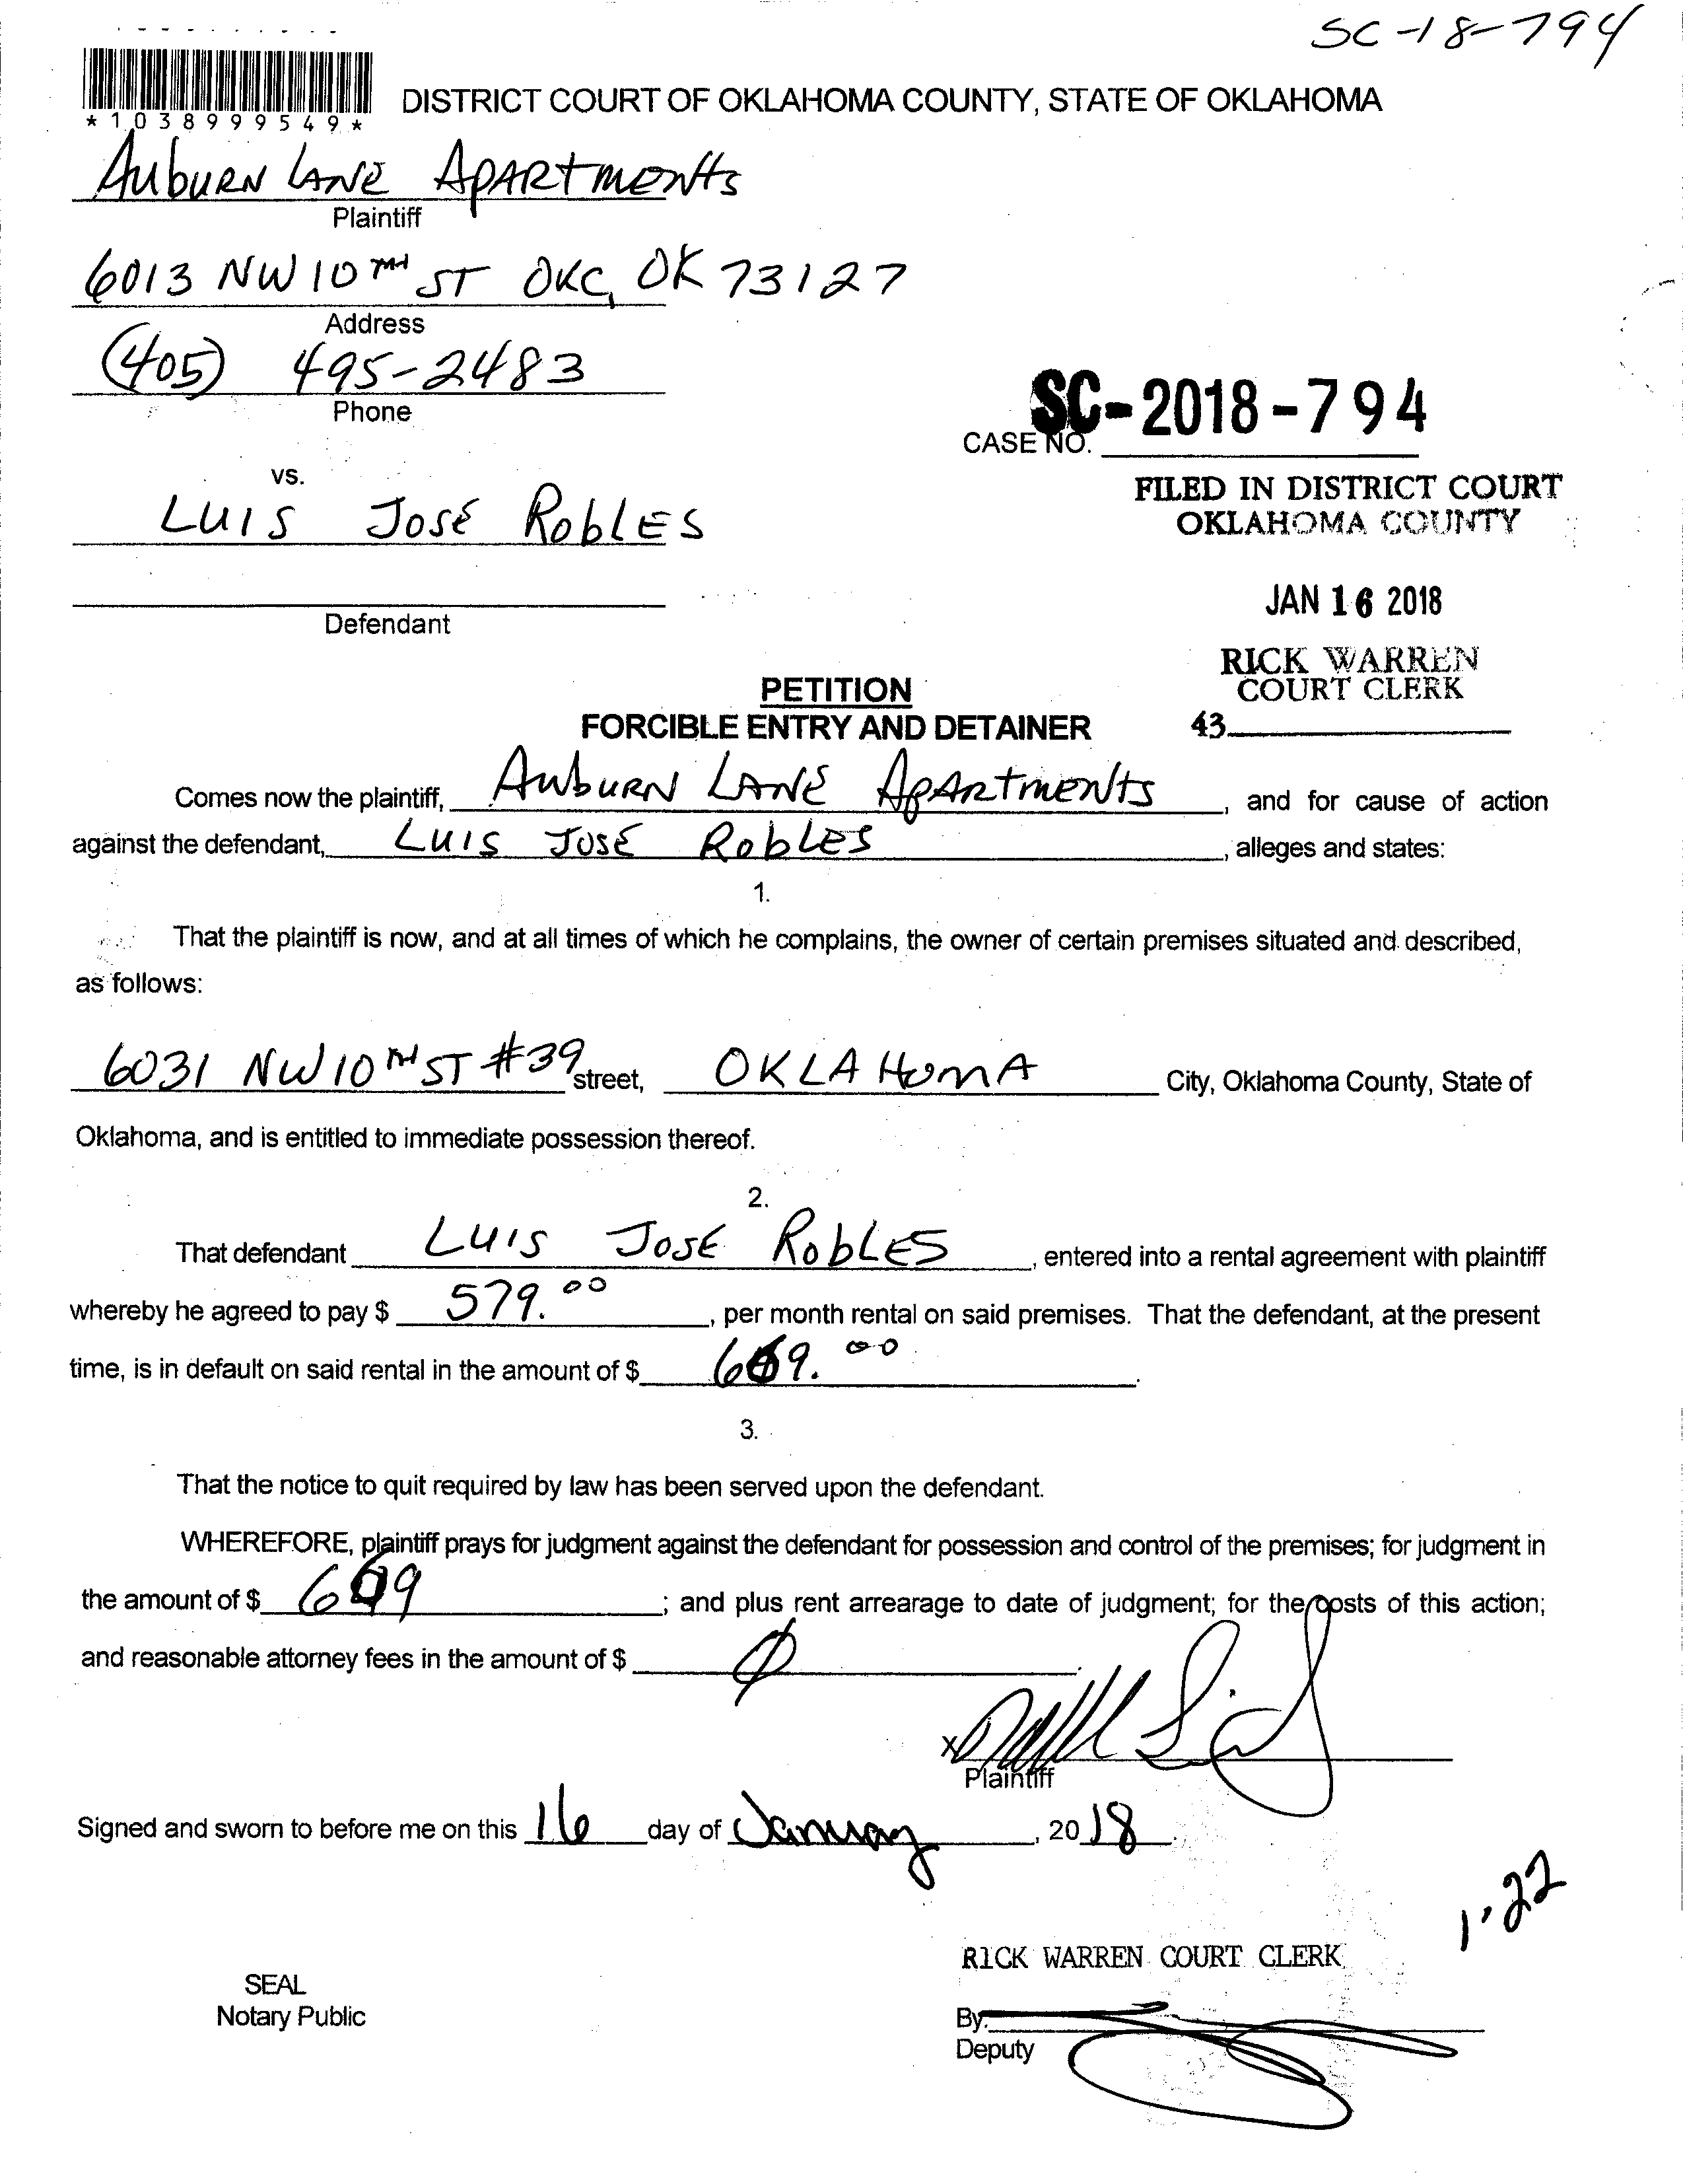 SC-18-794
*1038999549*
DISTRICT COURT OF OKLAHOMA COUNTY, STATE OF OKLAHOMA
AUBURN LANE APARTMENTS
Plaintiff
6013 NW 10TH ST OKC, OK 73127
Address
(405) 495-2483
Phone
SC-2018-794
CASE NO.
vs.
LUIS JOSE ROBLES
FILED IN DISTRICT COURT
OKLAHOMA COUNTY
Defendant
JAN 16 2018
RICK WARREN
COURT CLERK
43
PETITION
FORCIBLE ENTRY AND DETAINER
Comes now the plaintiff, AUBURN LANE APARTMENTS, and for cause of action
against the defendant, LUIS JOSE ROBLES, alleges and states:
1.
That the plaintiff is now, and at all times of which he complains, the owner of certain premises situated and described,
as follows:
6031 NW 10TH ST #39 street, OKLAHOMA City, Oklahoma County, State of
Oklahoma, and is entitled to immediate possession thereof.
2.
That defendant LUIS JOSE ROBLES, entered into a rental agreement with plaintiff
whereby he agreed to pay $ 579.00, per month rental on said premises. That the defendant, at the present
time, is in default on said rental in the amount of $
3.
That the notice to quit required by law has been served upon the defendant.
WHEREFORE, plaintiff prays for judgment against the defendant for possession and control of the premises; for judgment in
the amount of $ ; and plus rent arrearage to date of judgment; for the costs of this action;
and reasonable attorney fees in the amount of $ Ø
X
Plaintiff
Signed and sworn to before me on this 16 day of January, 2018.
1-22
RICK WARREN COURT CLERK
SEAL
Notary Public
By:
Deputy